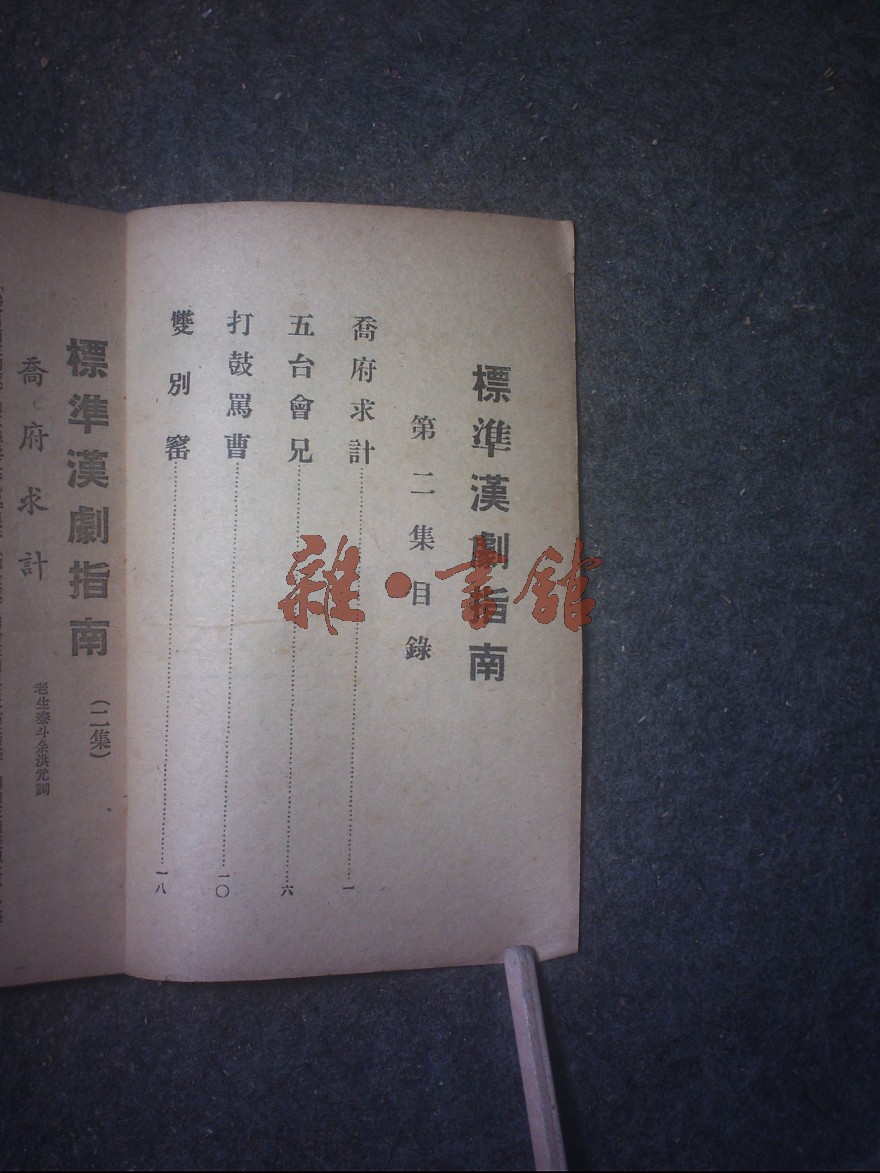 標準漢劇指南
第二集目錄
喬府求計……一
五台會兄……六
打鼓罵曹……一〇
雙別窰……一八
標準漢劇指南（二集）
老生泰斗余洪元詞
喬府求計
雜·書館